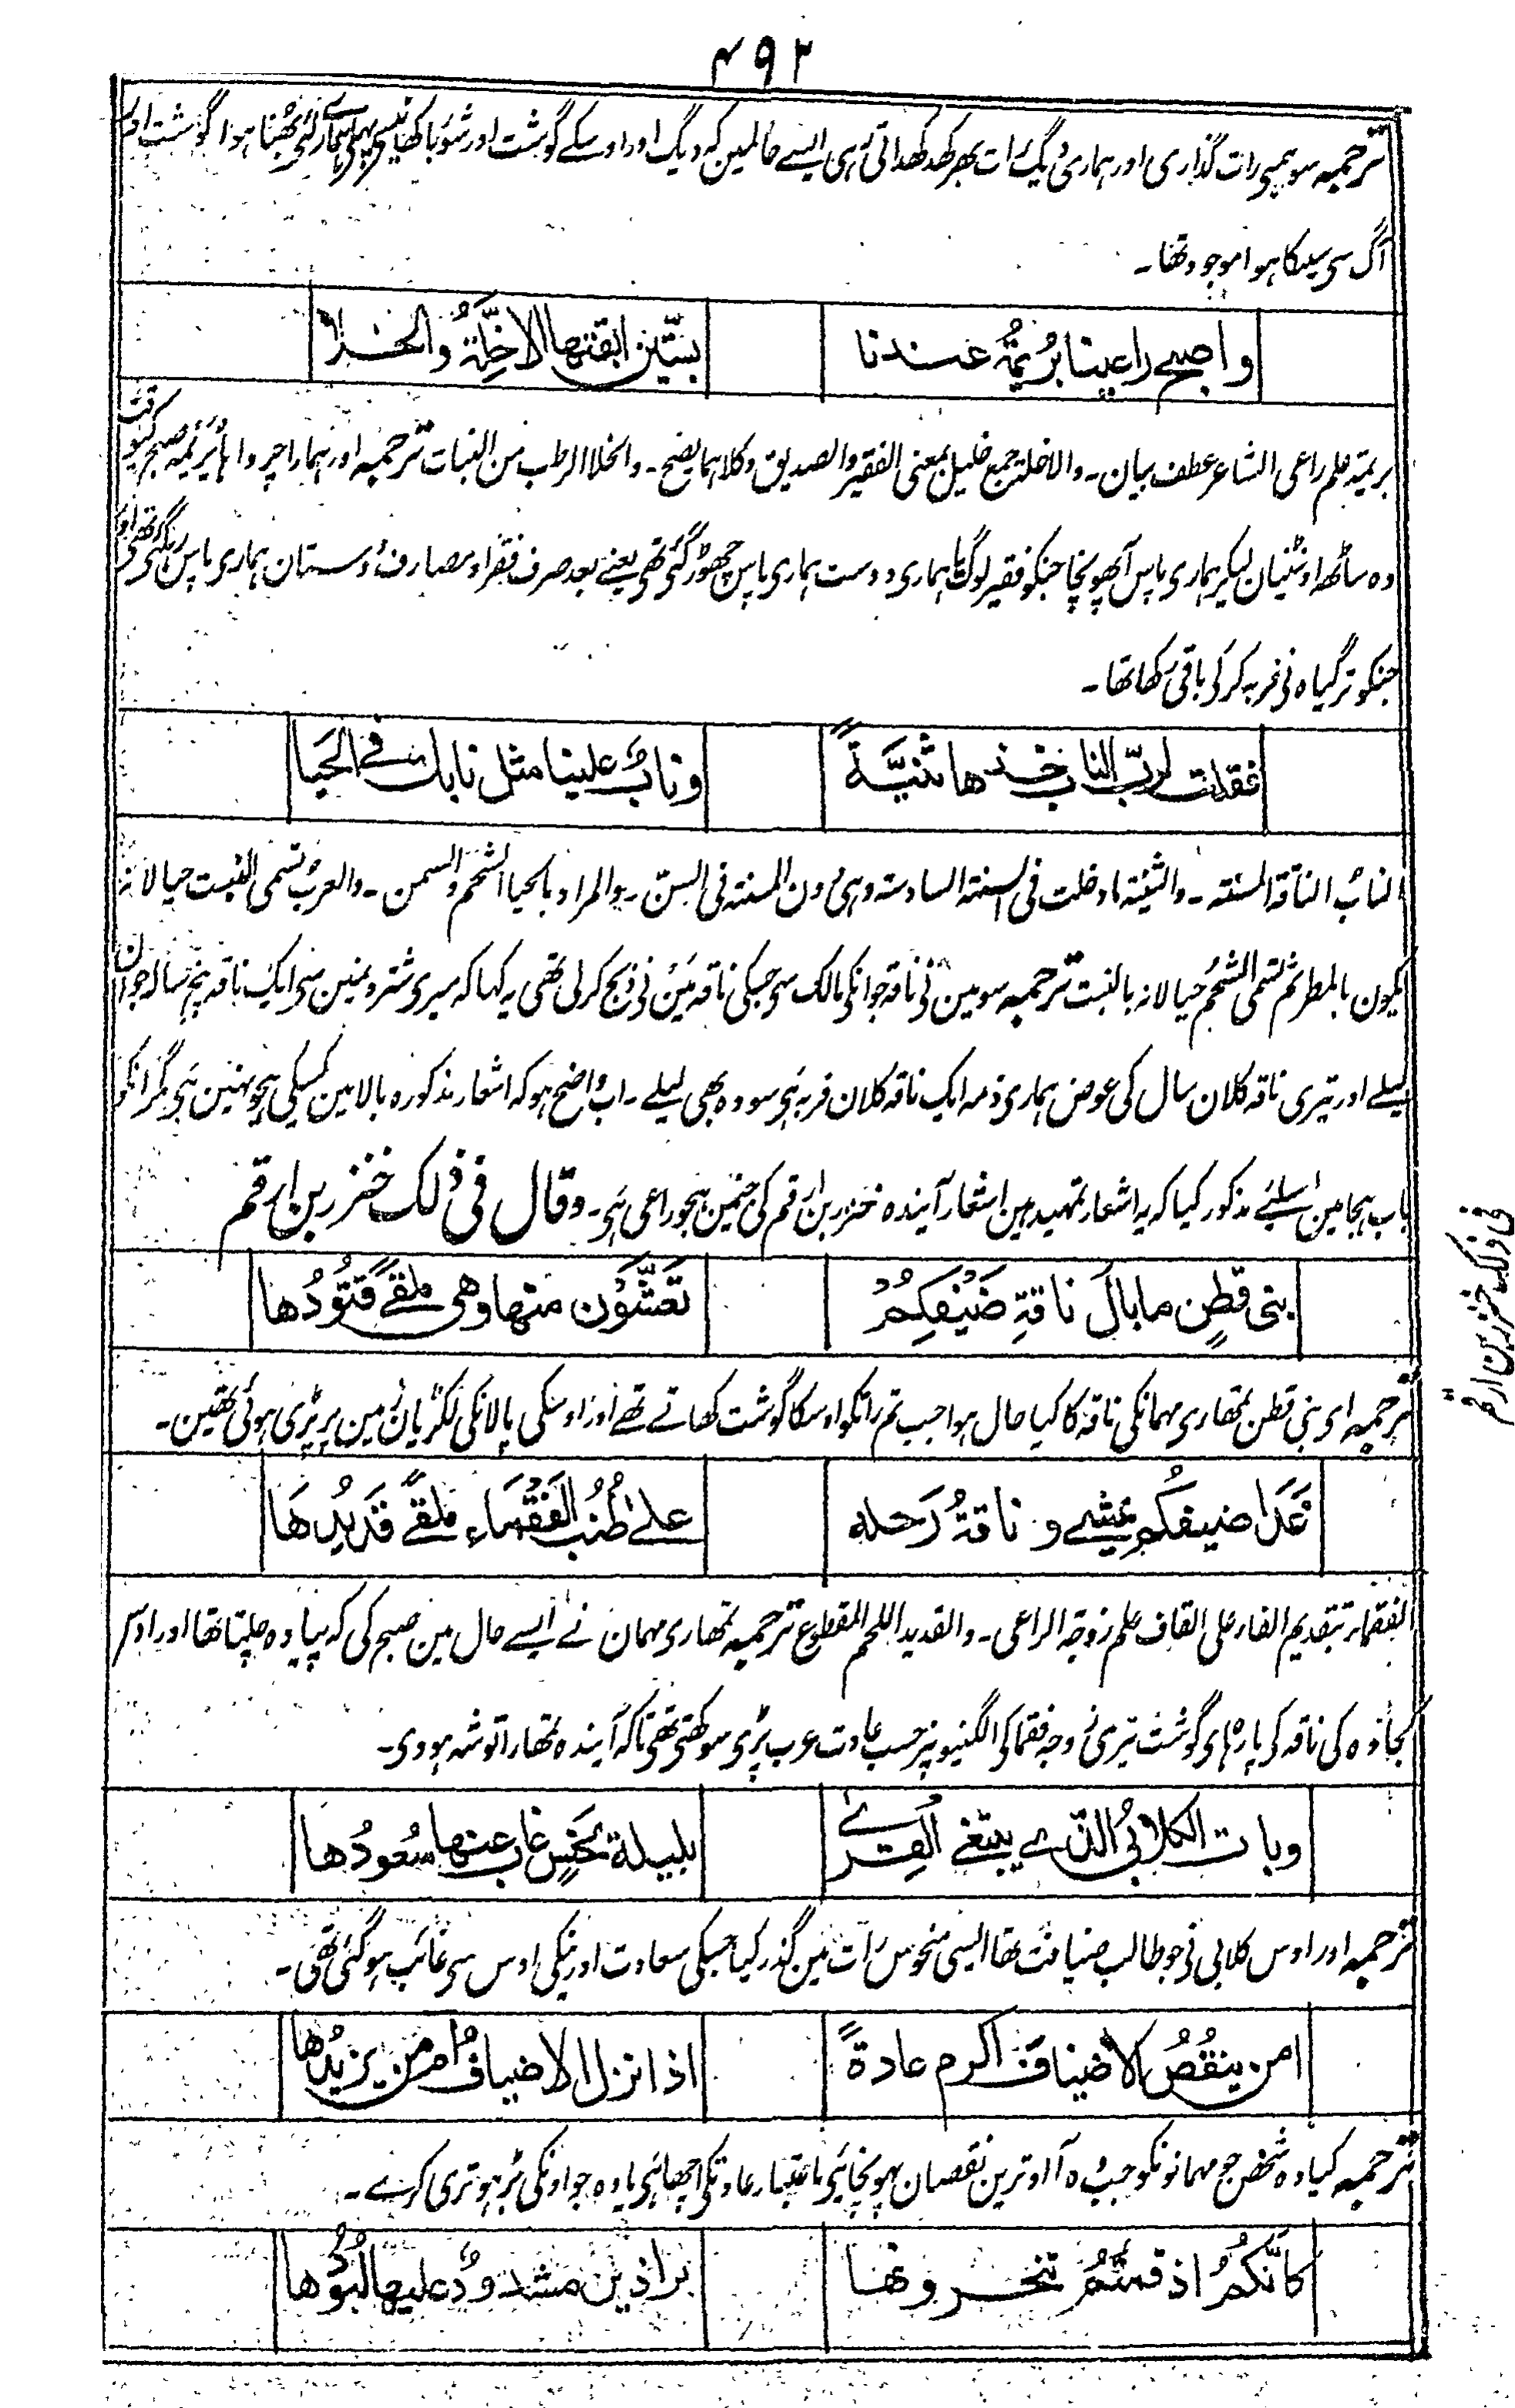 ۴۹۲
ترجمہ سو ہمنی رات گذاری اور ہماری دیگ رات بھر کھد کھداتی رہی ایسے حالمین کہ دیگ اور اوسکے گوشت اور شوربا کھانیسے پہلی ہمارے لئی بھنا ہوا گوشت اور
آگ سی سیکا ہوا موجود تھا۔
واصبح راعینا بُرَیمةُ عندنا
بستّین ابقتها الاخِلَّةُ والخلا
بریمة علم راعی الشاعر عطف بیان۔ والاخلة جمع خلیل بمعنی الفقیر والصدیق وکلاہما یصح۔ والخلا الرطب من النبات ترجمہ اور ہمارا چرواہا بُرَیمہ صبح کیوقت
وہ ساٹھ اونٹنیان لیکر ہماری پاس آپھونچا جنکو فقیر لوگ یا ہماری دوست ہماری پاس چھوڑ گئی تھی یعنے بعد صرف فقرا و مصارف دوستان ہماری پاس رہگئی تھی اور
جنکو تر گیاہ نی فربہ کرکی باقی رکھا تھا۔
فقلت لربّ الناب خذها ثنیَّةً
ونابٌ علینا مثل نابك فی الحَیا
الناب الناقة المسنة۔ والثنیة ما دخلت فی السنة السادسة وہی دون المسنة فی السنّ۔ والمراد بالحیا الشحم والسمن۔ والعرب تسمی النبت حیا لانہ
یکون بالمطر ثم تسمی الشحم حیا لانہ بالنبت ترجمہ سو مین نی ناقہ جوانکی مالک سی جسکی ناقہ مَین نی ذبح کرلی تھی یہ کہا کہ میری شترونمین سی ایک ناقہ پنج سالہ جوان
لیلے اور تیری ناقہ کلان سال کی عوض ہماری ذمہ ایک ناقہ کلان فربہ ہَی سو وہ بھی لیلے۔ اب واضح ہو کہ اشعار مذکورہ بالا مین کسیکی ہجو نہین ہَی مگر انکو
باب ہجا مین اسلئے مذکور کیا کہ یہ اشعار تمہید ہین اشعار آیندہ خنزر بن ارقم کی جنمین ہجو راعی ہَی۔ وقال فی ذلک خنزر بن ارقم
فی ذلک خنزر بن ارقم
بنی قَطَنٍ ما بالُ ناقةِ ضَیفِکُمْ
تَعَشَّوْن منها وهی ملقًی قُتُودُها
ترجمہ ای بنی قطن تمھاری مہمانکی ناقہ کا کیا حال ہوا جب تم راتکو اوسکا گوشت کھاتے تھے اور اوسکی پالانکی لکڑیان زمین پر پڑی ہوئی تھین۔
غَدَا ضیفکُم یمشی و ناقةُ رَحله
علی طُنُبِ الفَقْماءِ ملقًی قَدِیدُهَا
الفقماء بتقدیم الفاء علی القاف علم زوجة الراعی۔ والقدید اللحم المقطوع ترجمہ تمھاری مہمان نے ایسے حال مین صبح کی کہ پیادہ چلتا تھا اور اوس
کجاوہ کی ناقہ کی پارہای گوشت تیری زوجہ فقما کی الگنیونپر حسب عادت عرب پڑی سوکھتی تھی تاکہ آیندہ تمھارا توشہ ہووی۔
وبات الکلابیُّ الذی یبتغی القِری
بلیلة نَحْسٍ غاب عنها سُعُودُها
ترجمہ اور اوس کلابی نی جو طالب ضیافت تھا ایسی منحوس رات مین گذر کیا جسکی سعادت اور نیکی اوس سی غائب ہوگئی تھی۔
امن ینقُصُ الاضیافَ اکرم عادةً
اذا نزل الاضیافُ ام من یزیدُها
ترجمہ کیا وہ شخص جو مہمانونکو جب وہ آ اوترین نقصان پہونچائی باعتبار عادتکی اچھا ہَی یا وہ جو اونکی بڑہوتری کرے۔
کانّکُم اذ قمتُم تنحرونها
براذین مشدودٌ علیها لُبُودُها